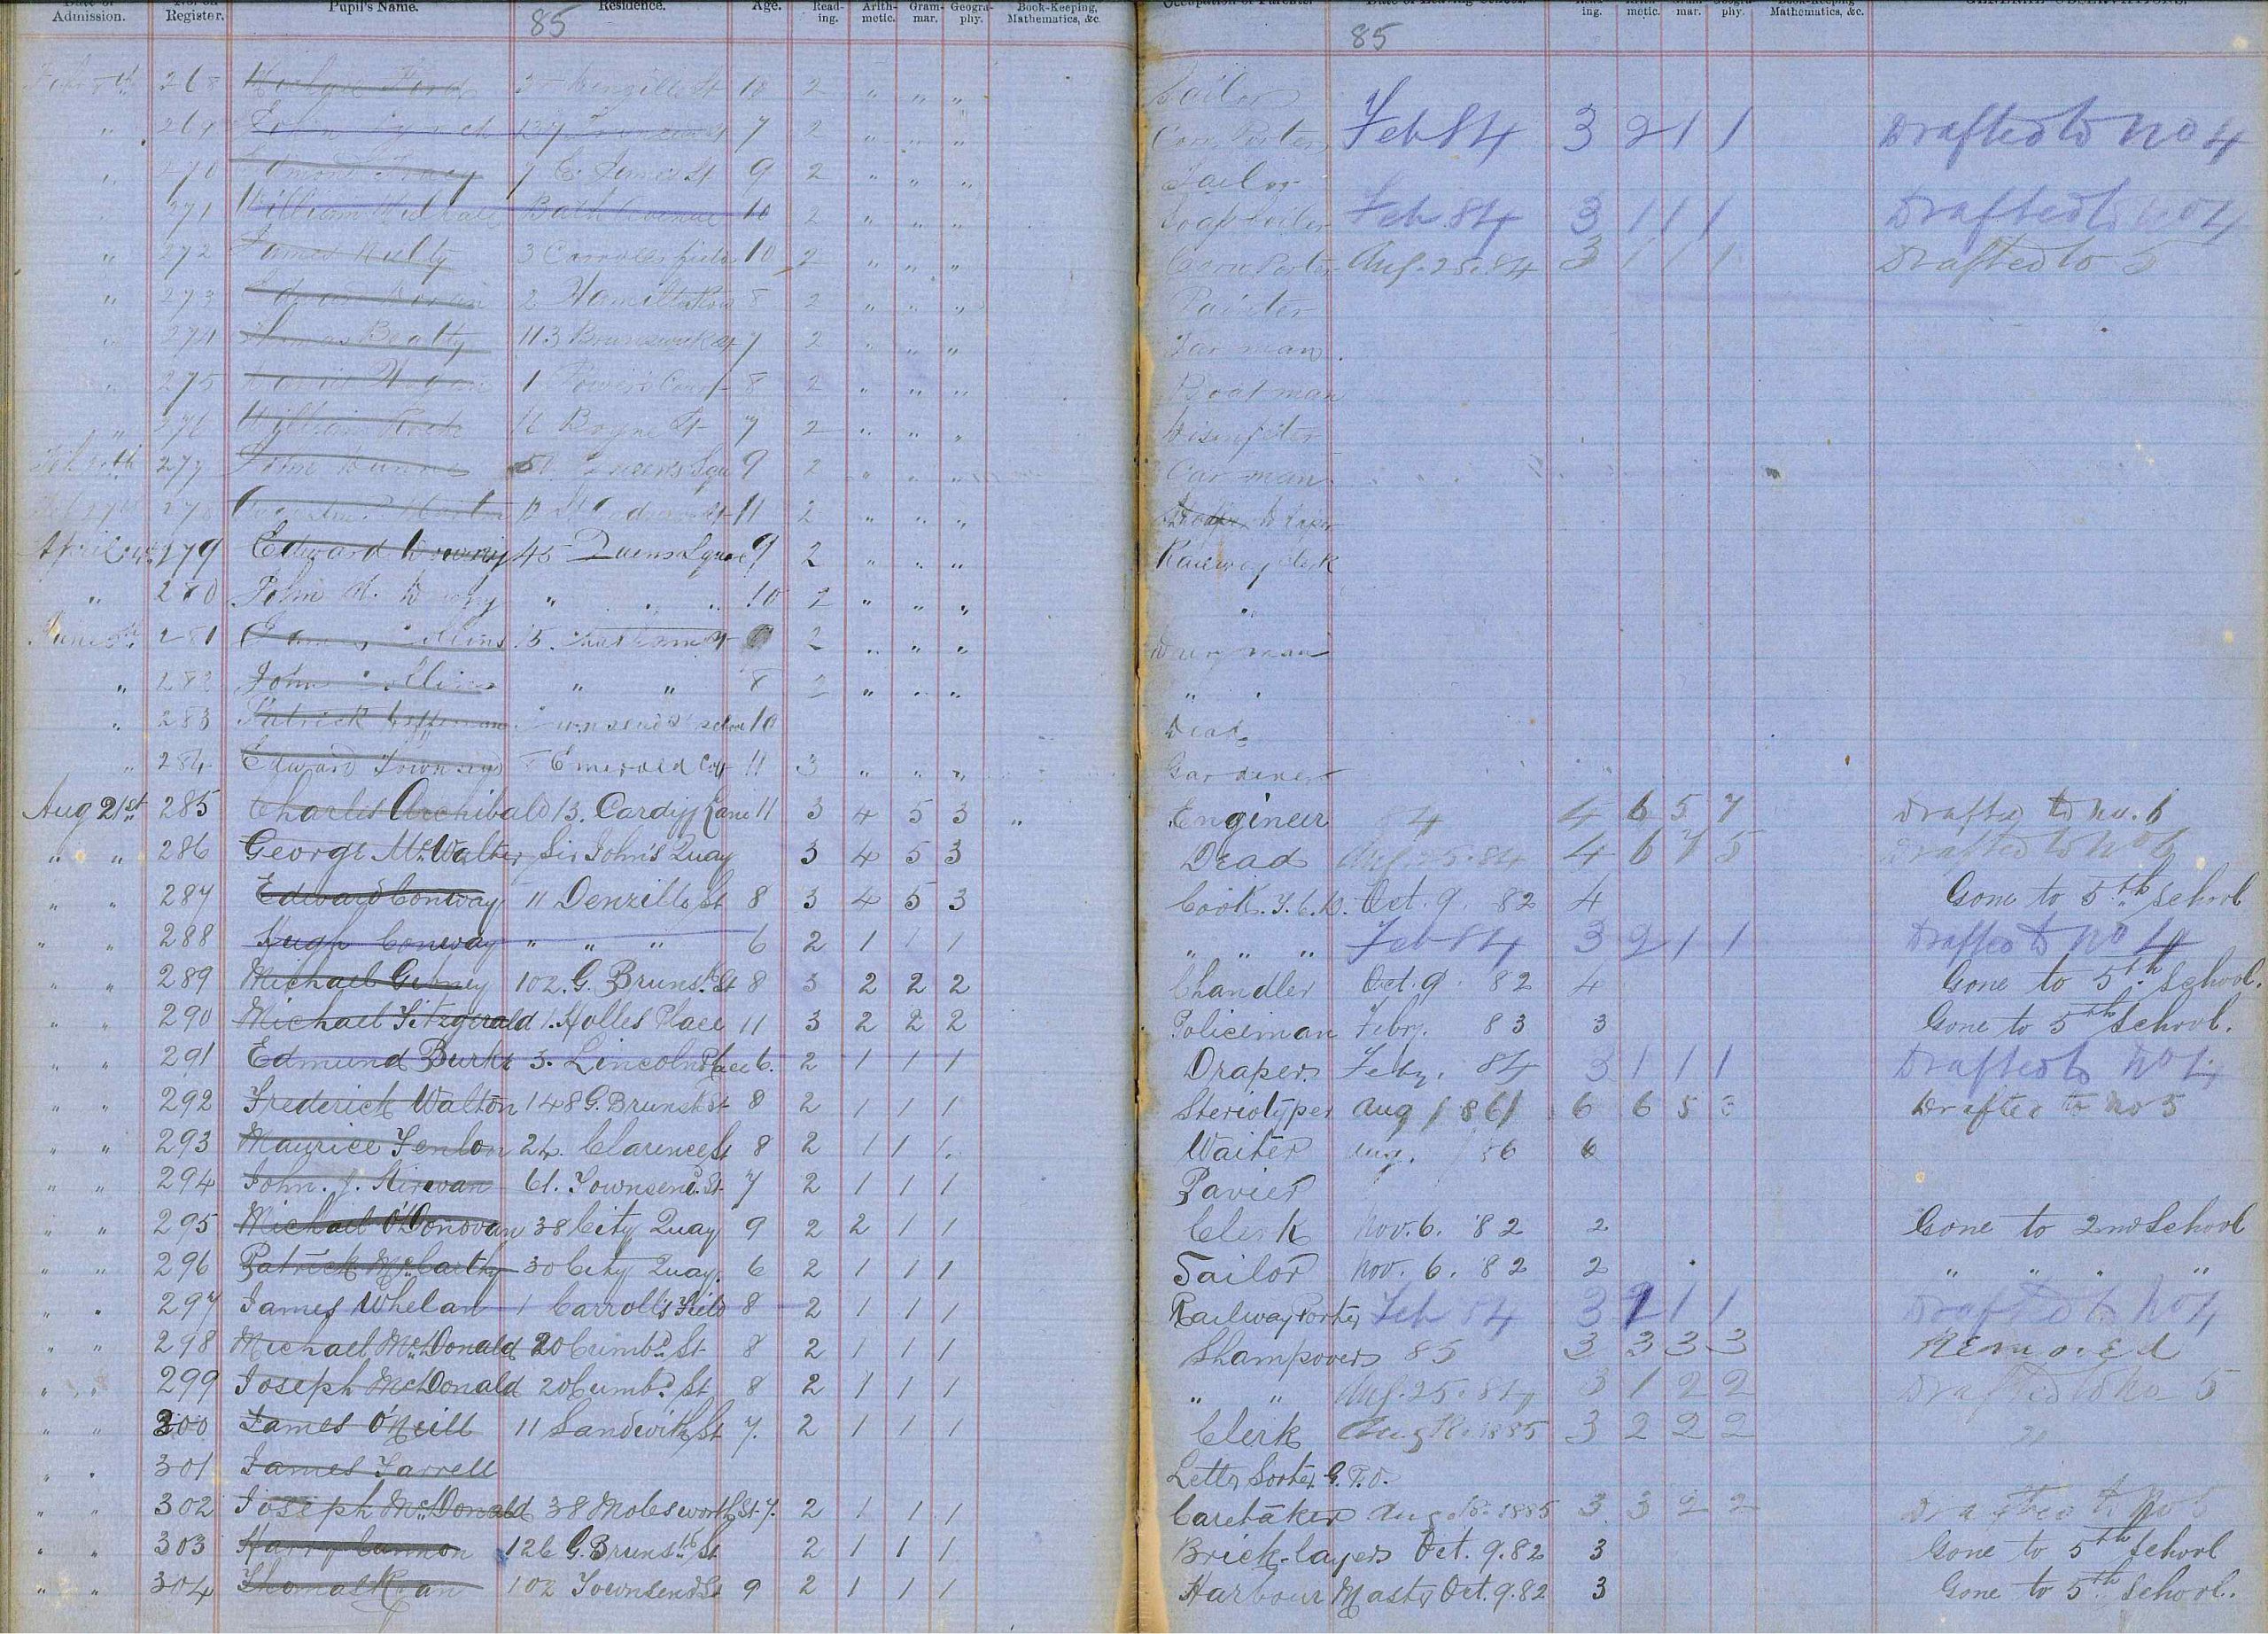 Admission. Register. Pupil's Name. Residence. Age. Read-ing. Arith-metic. Gram-mar. Geogra-phy. Book-Keeping, Mathematics, &c. ing. metic. mar. phy. Mathematics, &c.
85 85
268 Ford St 10 2 " " " Sailor
" 269 John 7 2 " " " Corn Porter Feb 84 3 2 1 1 Drafted to No 4
" 270 7 E. James St 9 2 " " " Sailor
271 William Bath Avenue 10 2 " " " Feb. 84 3 1 1 1 Drafted to No 4
" 272 James Nulty 3 Carroles field 10 2 " " " Corn Porter Aug. 25. 84 3 1 1 1 Drafted to 5
" 273 Edward 2 Hamilton Row 8 2 " " " Painter
274 Thomas Beatty 113 Brunswick St 7 2 " " " Carman
275 1 Powers Court 8 2 " " " Boatman
" 276 William Roche 16 Boyne St 7 2 " " "
277 John Dunne Queens Squ 9 2 " " " Car man
278 11 2 " " "
April 279 Edward 45 Queens Square 9 2 " " " Railway clerk
" 280 John " " " 10 2 " " " "
June 281 James 5. St 2 " " " Drayman
" 282 John 	" " 8 2 " " " " "
" 283 Patrick Heffernan 10 Dead
" 284 Edward Townsend Emerald Cott 11 3 " " " Gardener
Aug 21st 285 Charles Archibald 13. Cardiff Lane 11 3 4 5 3 " Engineer 84 4 6 5 7 Drafted to No. 6
" " 286 George McWalter Sir John's Quay 3 4 5 3 Dead Aug. 25. 84 4 6 7 5 Drafted to No 6
" " 287 Edward Conway 11 Denzille St 8 3 4 5 3 Cook. T. C. D. Oct. 9. 82 4 Gone to 5th School
" " 288 Hugh Conway " " " 6 2 1 1 1 " " " Feb 84 3 2 1 1 Drafted to No 4
" " 289 Michael Gibney 102. G. Brunsk St 8 3 2 2 2 Chandler Oct. 9. 82 4 Gone to 5th School.
" " 290 Michael Fitzgerald 1. Holles Place 11 3 2 2 2 Policeman Feby. 83 3 Gone to 5th School.
" " 291 Edmund Burke 3. Lincoln Place 6. 2 1 1 1 Draper Feby. 84 3 1 1 1 Drafted to No 4
" " 292 Frederick Walton 148 G. Brunsk St 8 2 1 1 1 Steriotyper Aug 1861 6 6 5 3 Drafted to No 5
" " 293 Maurice Fenlon 24. Clarence St 8 2 1 1 1 Waiter Aug. 86 6
" " 294 John. J. Kirwan 61. Townsend. St 7 2 1 1 1 Pavier
" " 295 Michael O'Donovan 38 City Quay 9 2 2 1 1 Clerk Nov. 6. '82 2 Gone to 2nd School
" " 296 Patrick McCarthy 30 City Quay. 6 2 1 1 1 Sailor Nov. 6. 82 2 " " " "
" " 297 James Whelan 1 Carroll's Field 8 2 1 1 1 Railway Porter Feb 84 3 2 1 1 Drafted to No 4
" " 298 Michael McDonald 20 Cumbd. St 8 2 1 1 1 Shampooer 85 3 3 3 3 Removed
" " 299 Joseph McDonald 20 Cumbd. St 8 2 1 1 1 " " Aug. 25. 84 3 1 2 2 Drafted to No 5
" " 300 James O'Neill 11 Sandwith St 7. 2 1 1 1 Clerk Aug 1885 3 2 2 2 "
" " 301 James Farrell Letter Sorter G. P. O.
" " 302 Joseph McDonald 38 Molesworth St. 7. 2 1 1 1 Caretaker Aug 1885 3 3 2 2 Drafted to No 5
" " 303 Harry Cannon 126 G. Brunsk St 2 1 1 1 Brick-layer Oct. 9. 82 3 Gone to 5th School
" " 304 Thomas Ryan 102 Townsend St 9 2 1 1 1 Harbour Master Oct. 9. 82 3 Gone to 5th School.